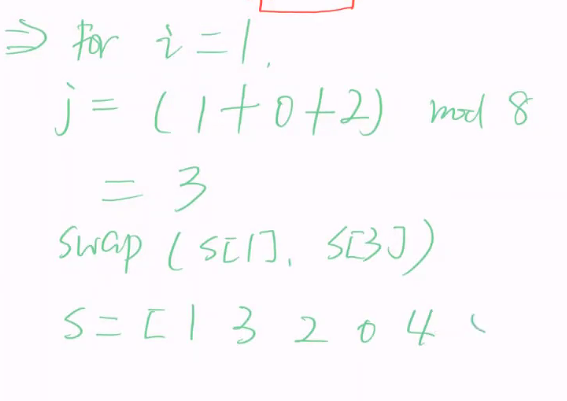 ⇒ for i = 1,
j = (1+0+2) mod 8
= 3
swap (S[1], S[3])
S = [1 3 2 0 4